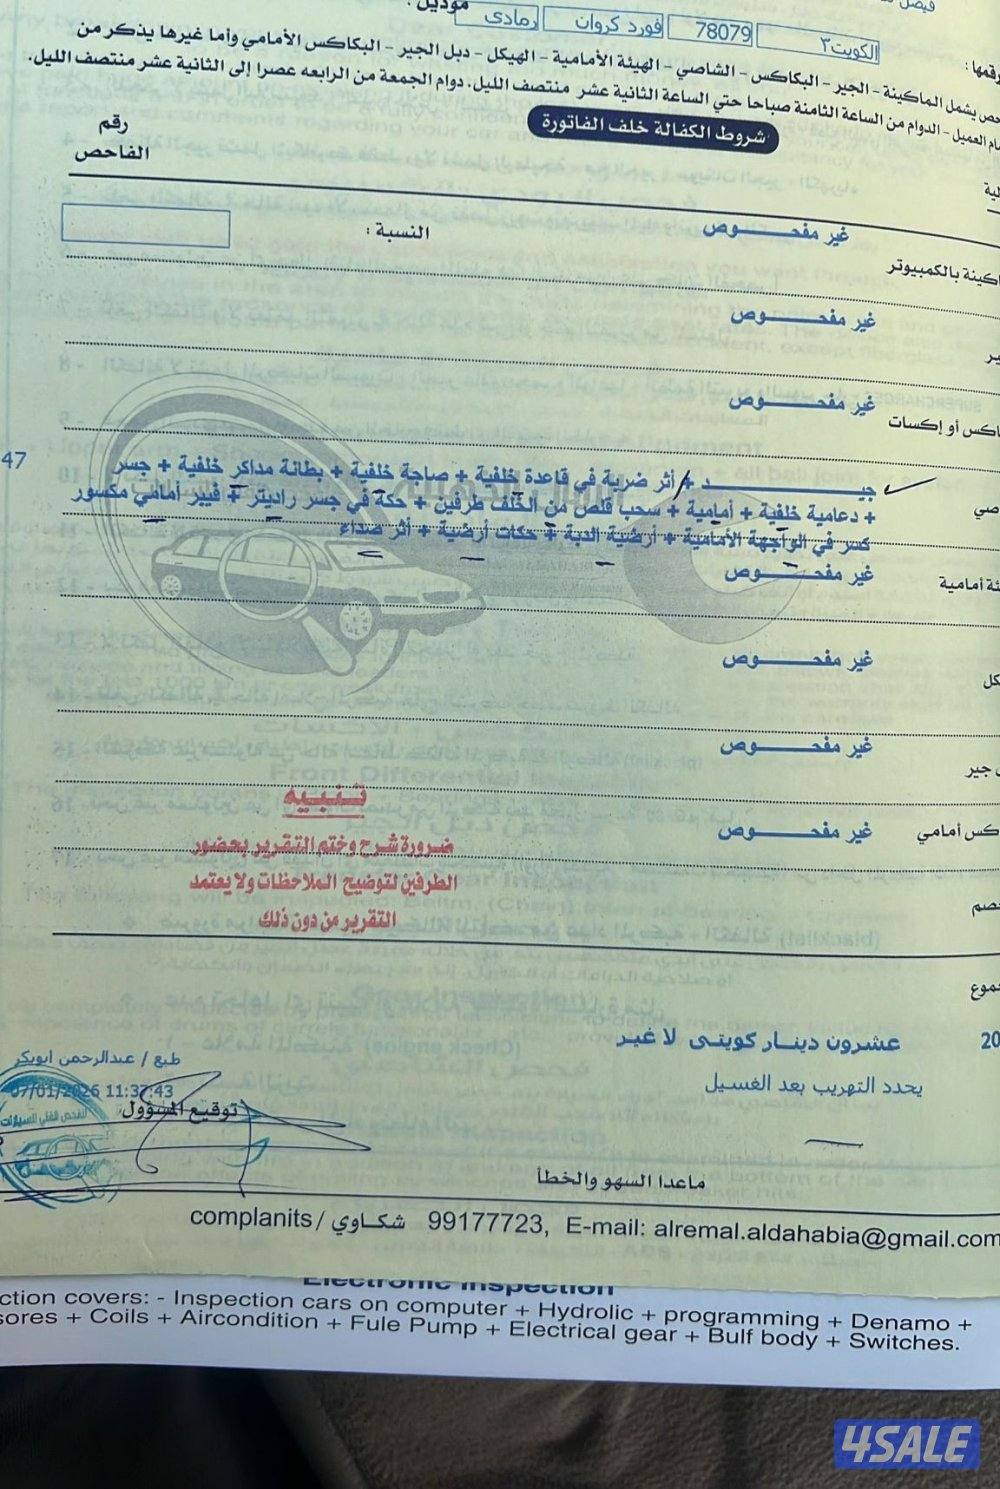 فيصل
موديل :
رقمها :
الكويت٣ 78079 فورد كروان رمادى
حص يشمل الماكينة - الجير - البكاكس - الشاصي - الهيئة الأمامية - الهيكل - دبل الجير - البكاكس الأمامي وأما غيرها يذكر من
ام العميل - الدوام من الساعة الثامنة صباحا حتي الساعة الثانية عشر منتصف الليل. دوام الجمعة من الرابعه عصرا إلى الثانية عشر منتصف الليل.
شروط الكفالة خلف الفاتورة
رقم
الفاحص
غير مفحـــــوص
النسبة :
اكينة بالكمبيوتر
غير مفحـــــوص
غير مفحـــــوص
اكس أو إكسات
47
جيـــــــد + أثر ضربة في قاعدة خلفية + صاجة خلفية + بطانة مداكر خلفية + جسر
صي
+ دعامية خلفية + أمامية + سحب قلص من الخلف طرفين + حكة في جسر راديتر + فيبر أمامي مكسور
كسر في الواجهة الأمامية + أرضية الدبة + حكات أرضية + أثر صداء
ئة أمامية
غير مفحـــــوص
كل
غير مفحـــــوص
ل جير
غير مفحـــــوص
كس أمامي
غير مفحـــــوص
تنبيه
ضرورة شرح وختم التقرير بحضور
الطرفين لتوضيح الملاحظات ولا يعتمد
التقرير من دون ذلك
خصم
جموع
20
عشرون دينـار كويتى لا غير
يحدد التهريب بعد الغسيل
طبع / عبدالرحمن ابوبكر
07/01/2026 11:37:43
توقيع المسؤول
ماعدا السهو والخطأ
complanits / شكـاوي 99177723, E-mail: alremal.aldahabia@gmail.com
Electronic Inspection
ction covers: - Inspection cars on computer + Hydrolic + programming + Denamo +
sores + Coils + Aircondition + Fule Pump + Electrical gear + Bulf body + Switches.
4SALE